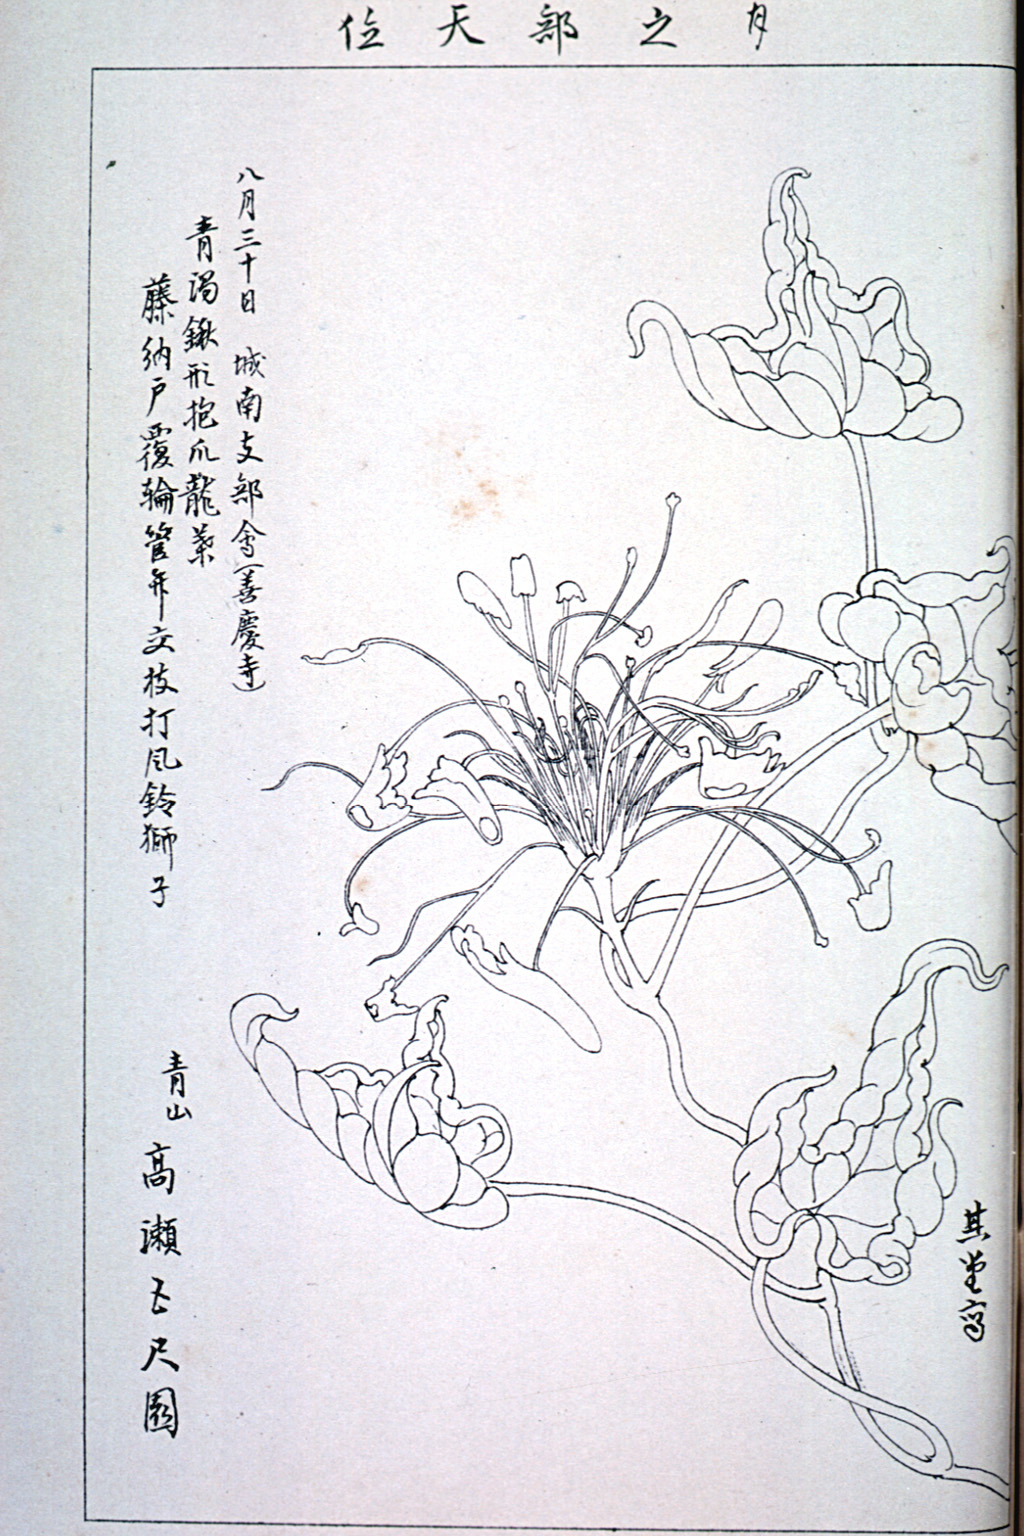 月之部天位
八月三十日 城南支部會(善慶寺)
青渦鍬形抱爪龍葉
藤納戸覆輪管弁交枝打風鈴獅子
青山 高瀬七尺園
其堂寫